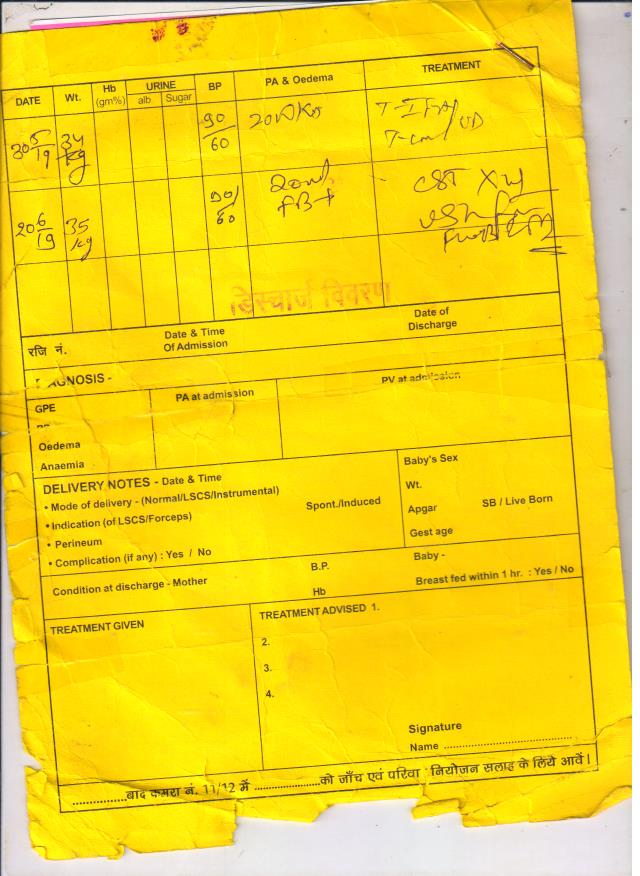 DATE Wt. Hb (gm%) URINE alb Sugar BP PA & Oedema TREATMENT
30 5/19 34 kg 90/60
20 6/19 35 kg 90/60
डिस्चार्ज विवरण
रजि नं. Date & Time Of Admission Date of Discharge
AGNOSIS -
GPE PA at admission PV at admission
Oedema
Anaemia
DELIVERY NOTES - Date & Time
• Mode of delivery - (Normal/LSCS/Instrumental)
• Indication (of LSCS/Forceps) Spont./Induced
• Perineum
• Complication (if any) : Yes / No
Baby's Sex
Wt.
Apgar SB / Live Born
Gest age
Condition at discharge - Mother B.P. Baby -
Hb Breast fed within 1 hr. : Yes / No
TREATMENT GIVEN
TREATMENT ADVISED 1.
2.
3.
4.
Signature
Name
बाद कमरा नं. 11/12 में को जाँच एवं परिवा नियोजन सलाह के लिये आवें।